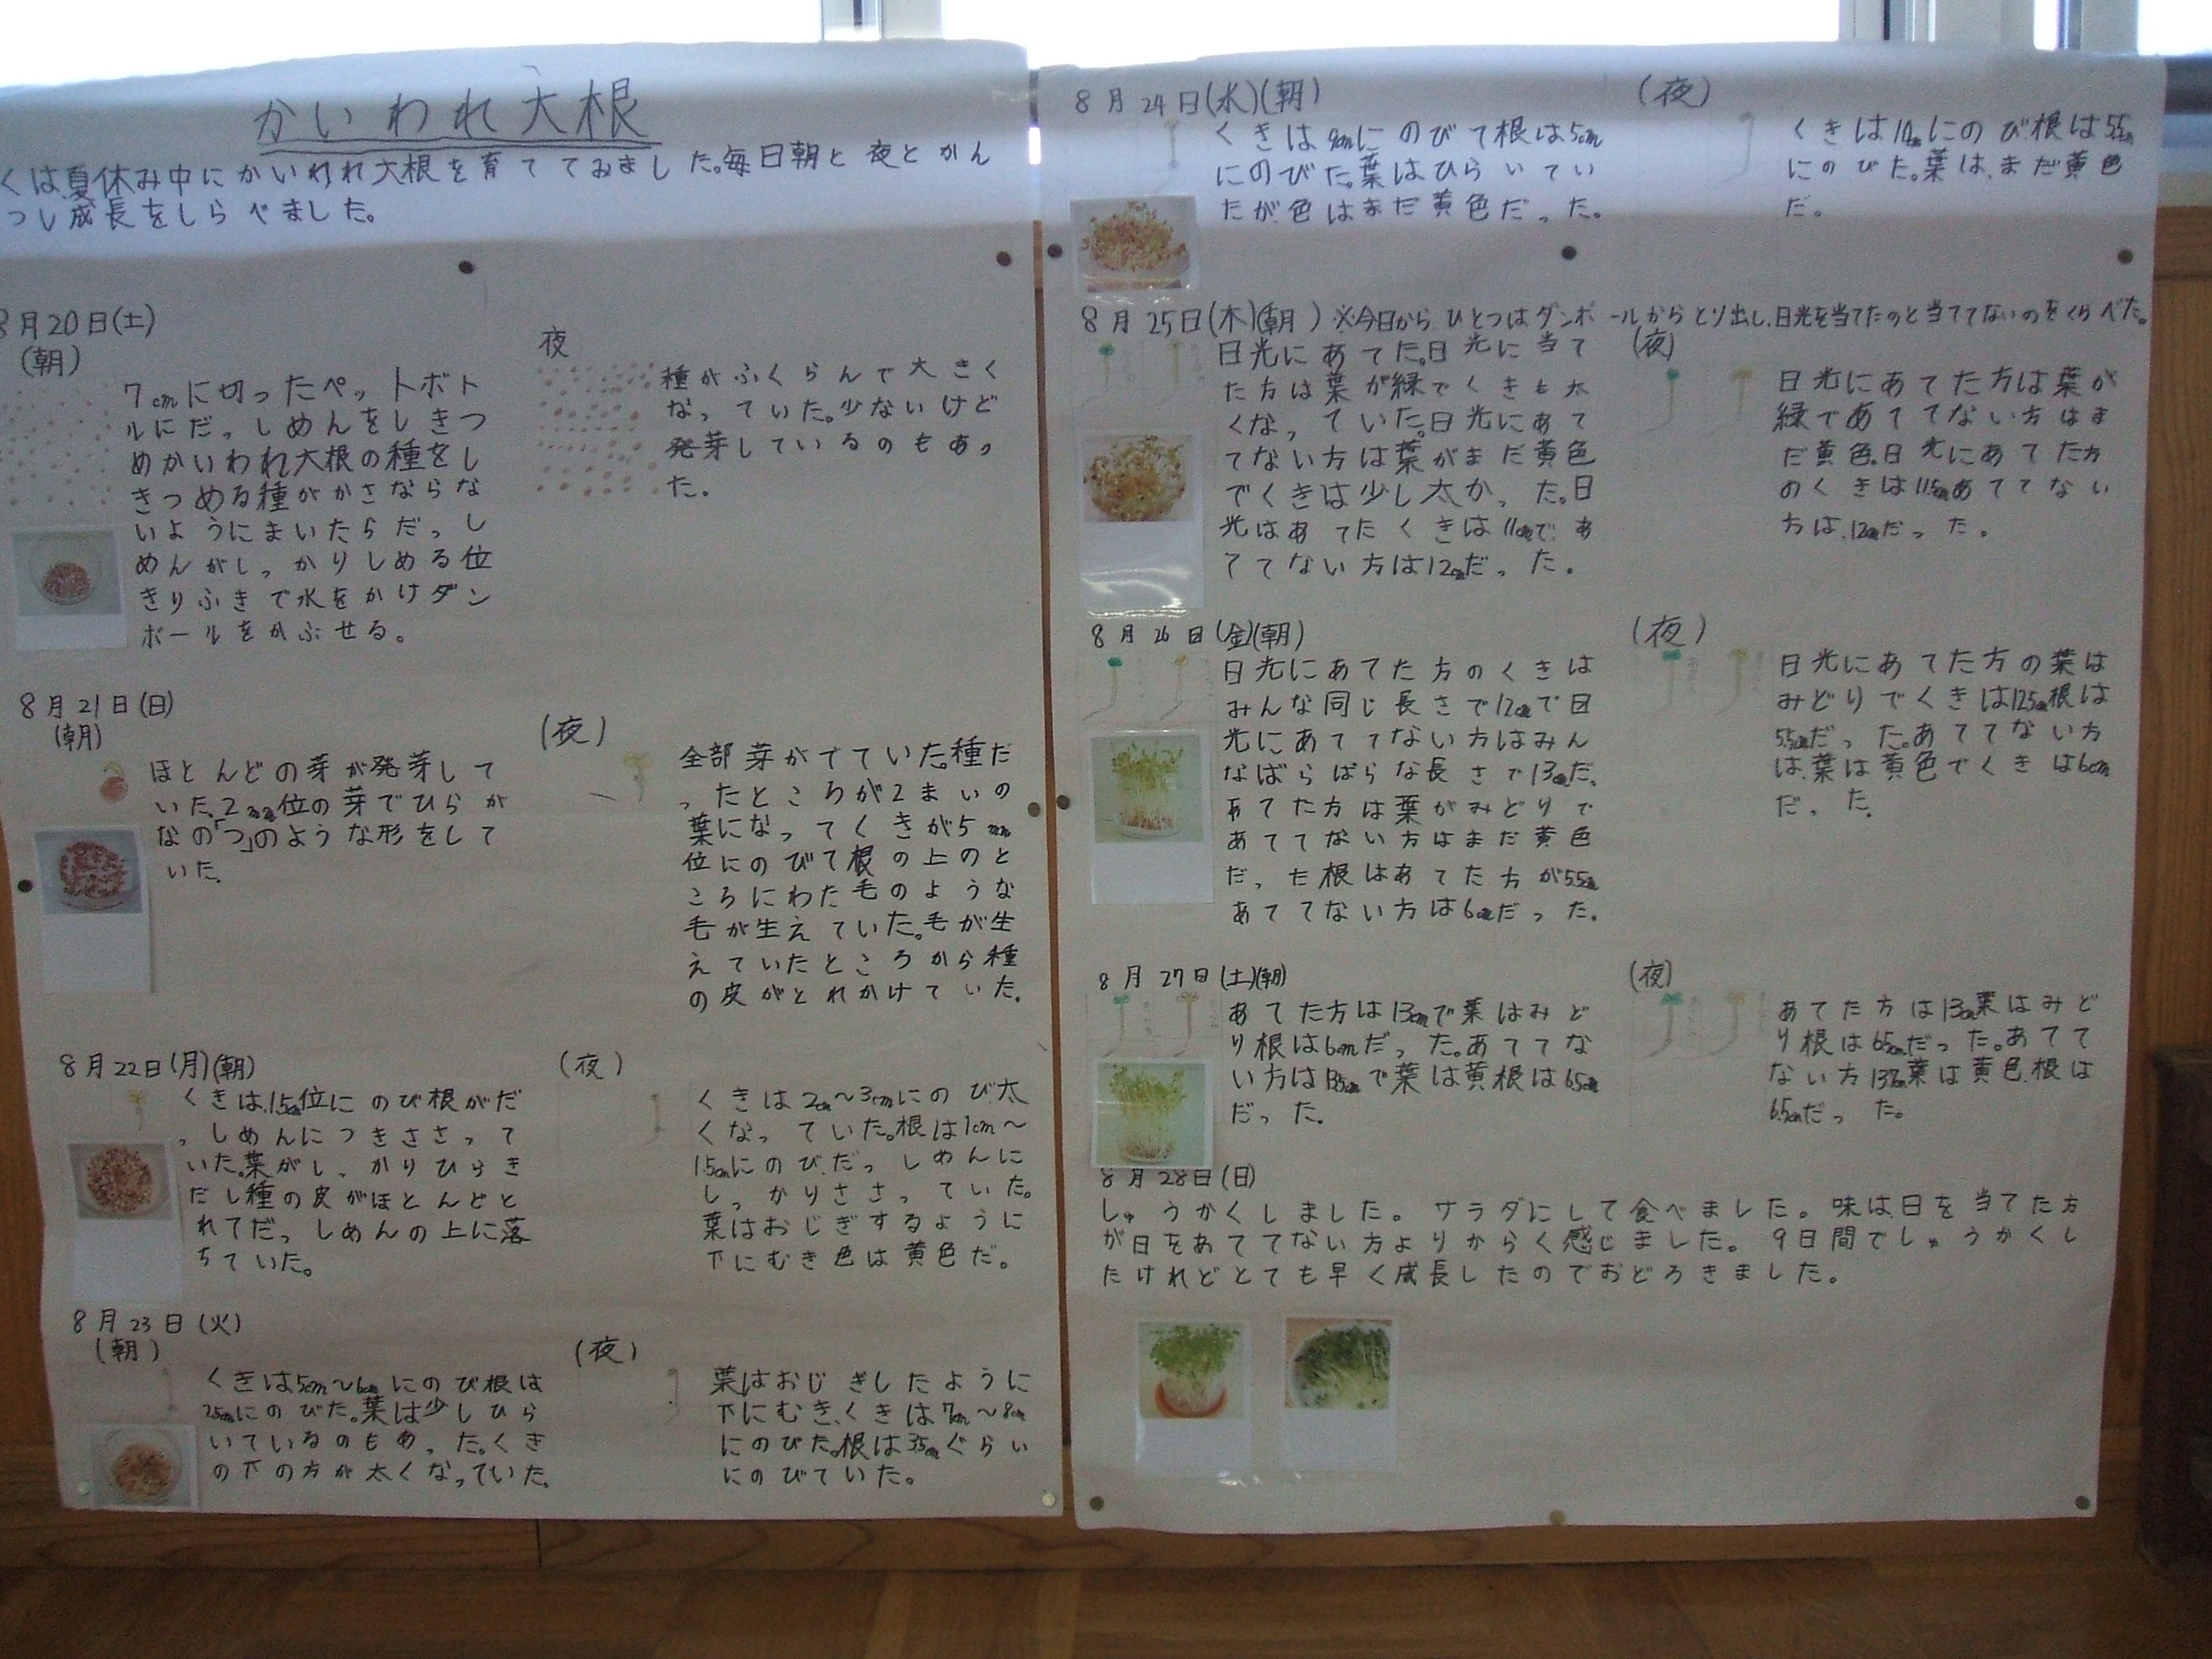 かいわれ大根
くは夏休み中にかいわれ大根を育ててみました。毎日朝と夜とかん
つし成長をしらべました。
8月20日(土)
(朝)
7cmに切ったペットボト
ルにだっしめんをしきつ
めかいわれ大根の種をし
きつめる種がかさならな
いようにまいたらだっし
めんがしっかりしめる位
きりふきで水をかけダン
ボールをかぶせる。
夜
種がふくらんで大きく
なっていた。少ないけど
発芽しているのもあっ
た。
8月21日(日)
(朝)
ほとんどの芽が発芽して
いた。2mm位の芽でひらが
なの「つ」のような形をして
いた。
(夜)
全部芽がでていた。種だ
ったところが2まいの
葉になってくきが5mm
位にのびて根の上のと
ころにわた毛のような
毛が生えていた。毛が生
えていたところから種
の皮がとれかけていた。
8月22日(月)(朝)
くきは1.5cm位にのび根がだ
っしめんにつきささって
いた。葉がしっかりひらき
だし種の皮がほとんどと
れてだっしめんの上に落
ちていた。
(夜)
くきは2cm～3cmにのび太
くなっていた。根は1cm～
1.5cmにのび、だっしめんに
しっかりささっていた。
葉はおじぎするように
下にむき色は黄色だ。
8月23日(火)
(朝)
くきは5cm～6cmにのび根は
2.5cmにのびた。葉は少しひら
いているのもあった。くき
の下の方が太くなっていた。
(夜)
葉はおじぎしたように
下にむき、くきは7cm～8cm
にのびた。根は3.5cmぐらい
にのびていた。
8月24日(水)(朝)
くきは9cmにのびて根は5cm
にのびた。葉はひらいてい
たが、色はまだ黄色だった。
(夜)
くきは10cmにのび、根は5.5cm
にのびた。葉は、まだ黄色
だ。
8月25日(木)(朝)※今日からひとつはダンボールからとり出し、日光を当てたのと当ててないのをくらべた。
日光にあてた。日光に当て
た方は葉が緑でくきも太
くなっていた。日光にあて
てない方は葉がまだ黄色
でくきは少し太かった。日
光はあてたくきは11cmで、あ
ててない方は12cmだった。
(夜)
日光にあてた方は葉が
緑であててない方はま
だ黄色。日光にあてた方
のくきは11.5cmあててない
方は、12cmだった。
8月26日(金)(朝)
日光にあてた方のくきは
みんな同じ長さで12cmで日
光にあててない方はみん
なばらばらな長さで13cmだ。
あてた方は葉がみどりで
あててない方はまだ黄色
だった根はあてた方が5.5cm
あててない方は6cmだった。
(夜)
日光にあてた方の葉は
みどりでくきは12.5cm根は
5.5cmだった。あててない方
は、葉は黄色でくきは6cm
だった。
8月27日(土)(朝)
あてた方は13cmで葉はみど
り根は6cmだった。あててな
い方は13.5cmで葉は黄根は6.5cm
だった。
(夜)
あてた方は13cm葉はみど
り根は6.5cmだった。あてて
ない方13.7cm葉は黄色、根は
6.5cmだった。
8月28日(日)
しゅうかくしました。サラダにして食べました。味は、日を当てた方
が日をあててない方よりからく感じました。9日間でしゅうかくし
たけれどとても早く成長したのでおどろきました。